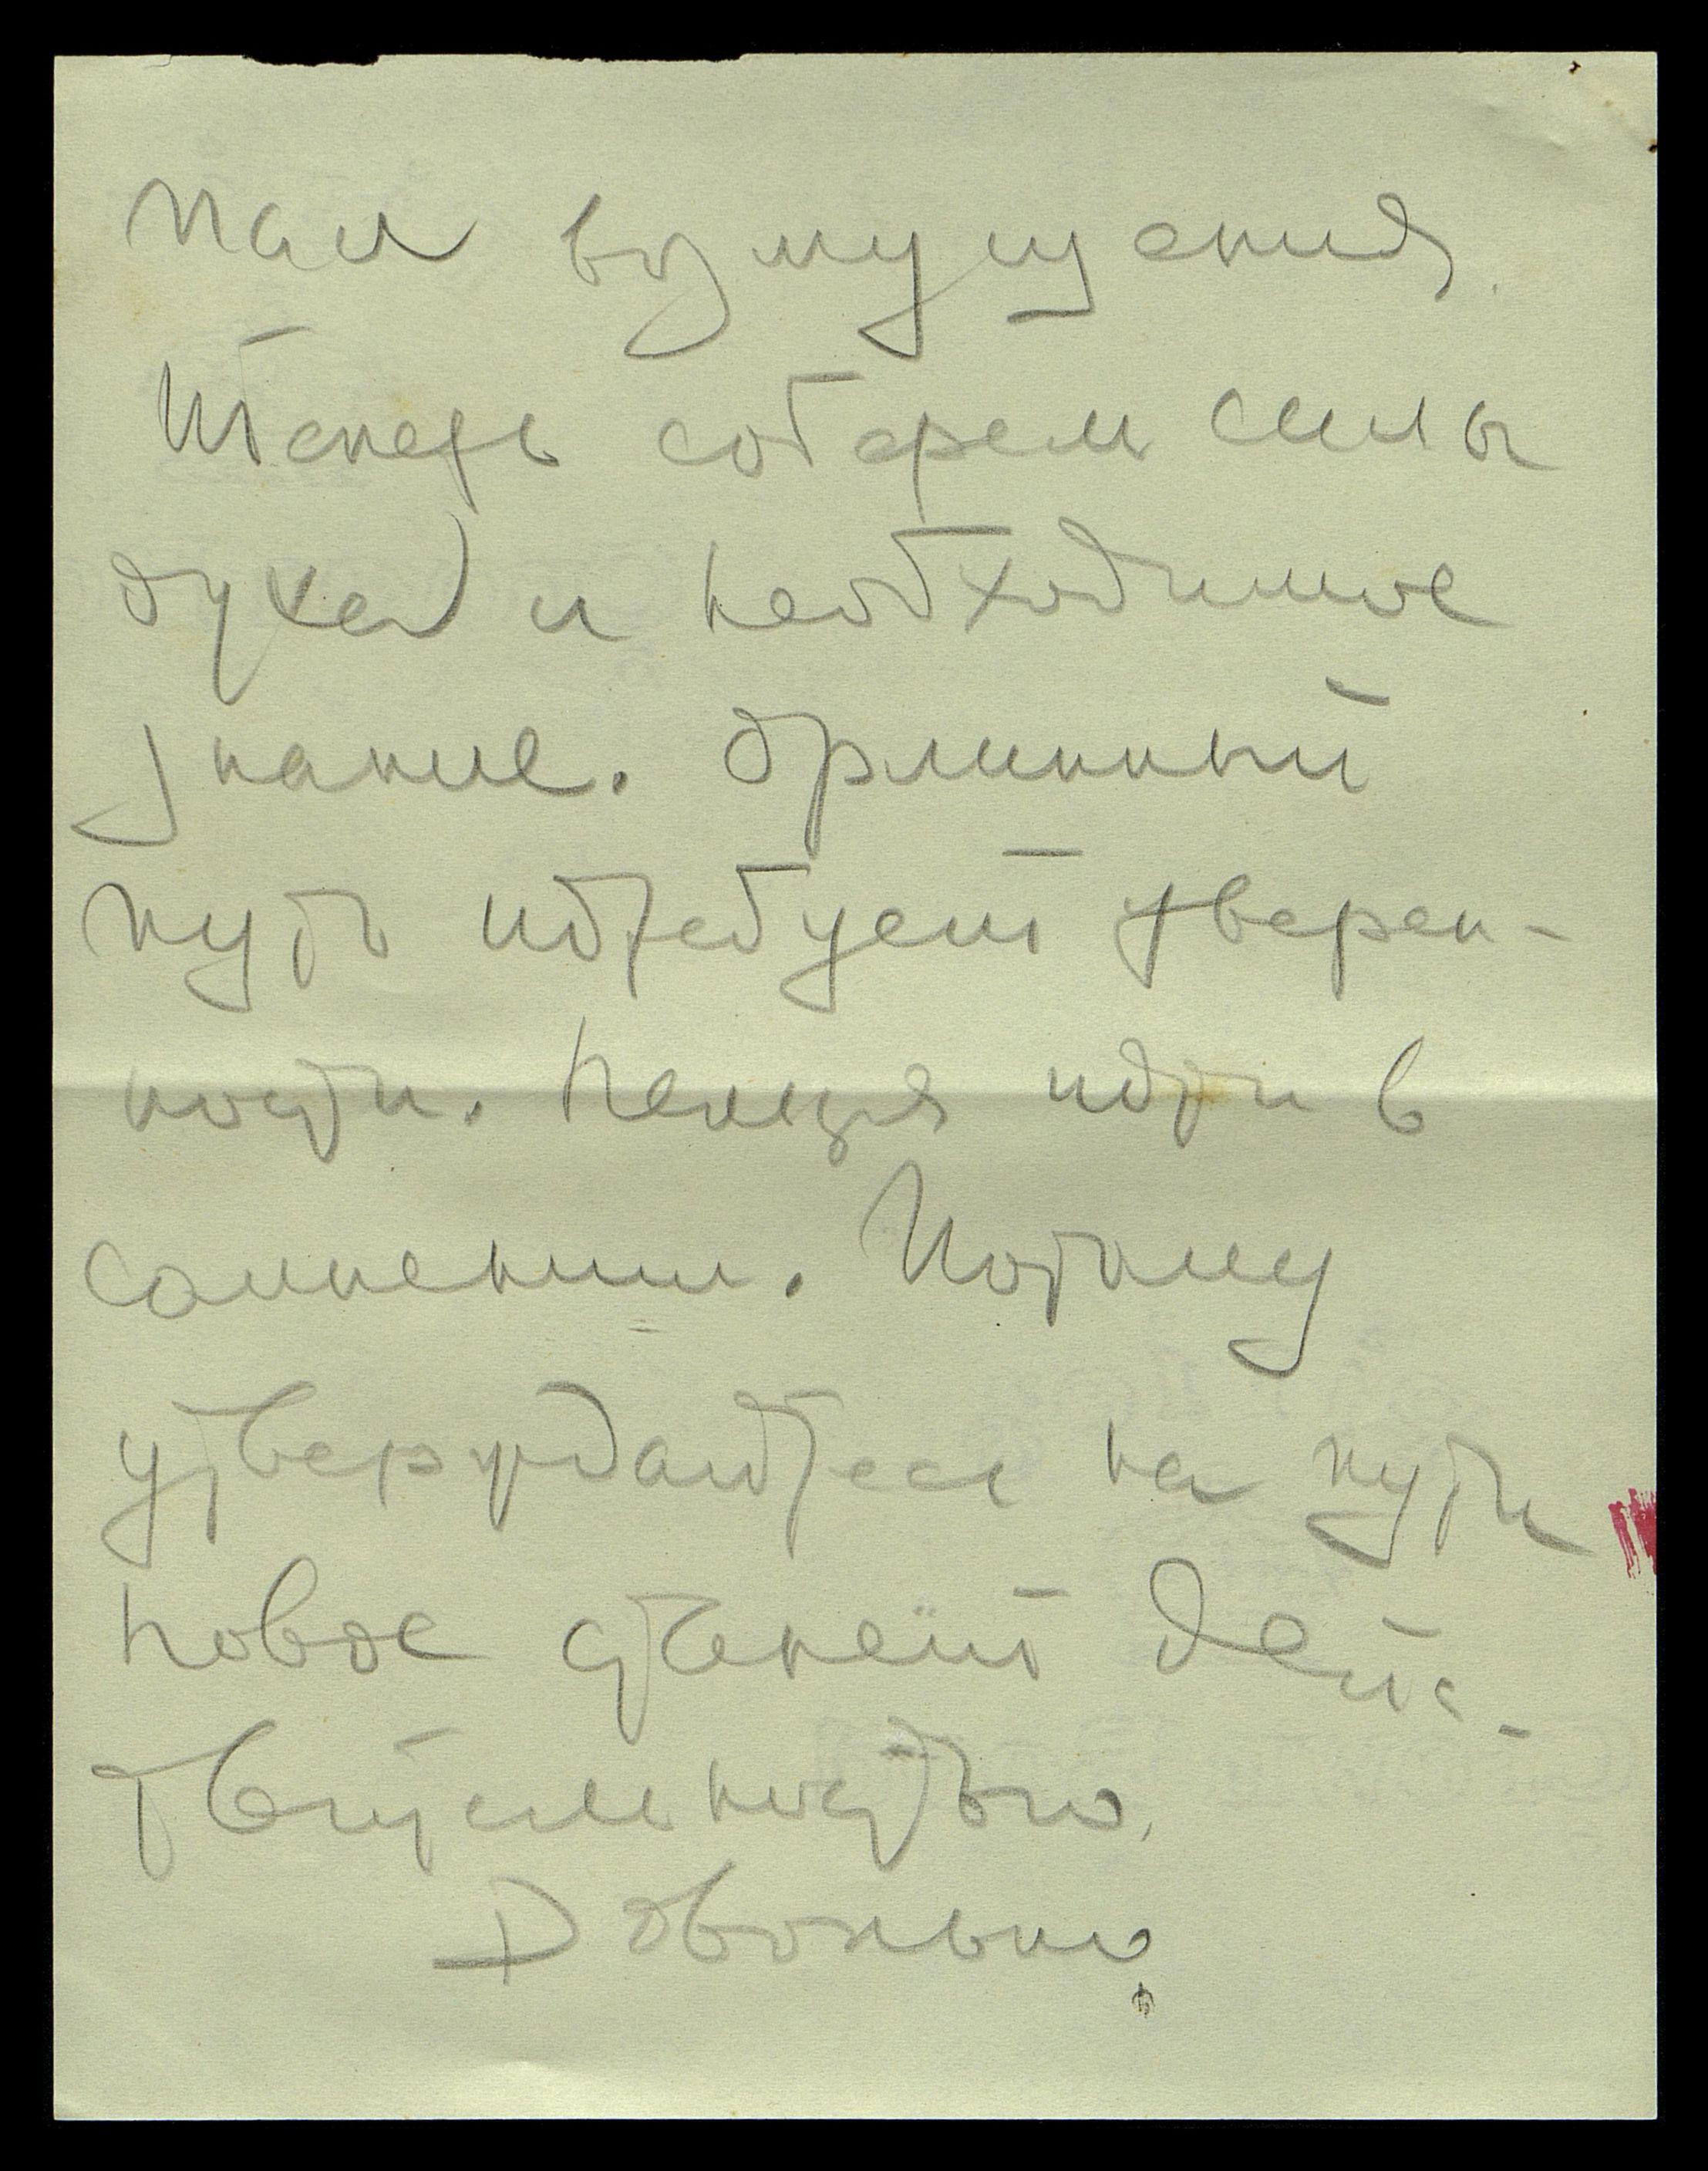 нам возмущения.
Теперь соберем силы
духа и необходимое
знание. Орлинный
путь потребует уверен-
ности. Нельзя идти в
сомнении. Потому
утверждайтесь на пути
новое станет дейс-
твительностью.
Довольно